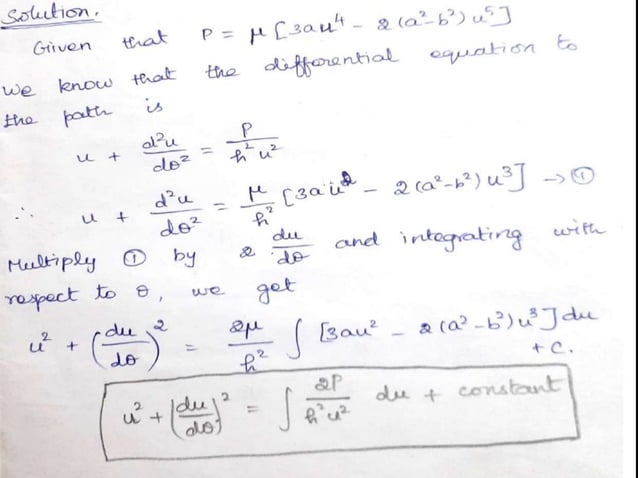 Solution.
Given that P = μ [3au⁴ - 2(a²-b²)u⁵]
We know that the differential equation to
the path is
u + d²u/dθ² = P/h²u²
∴ u + d²u/dθ² = μ/h² [3au² - 2(a²-b²)u³] → ①
Multiply ① by 2 du/dθ and integrating with
respect to θ, we get
u² + (du/dθ)² = 2μ/h² ∫ [3au² - 2(a²-b²)u³] du + c.
u² + (du/dθ)² = ∫ 2P/h²u² du + constant